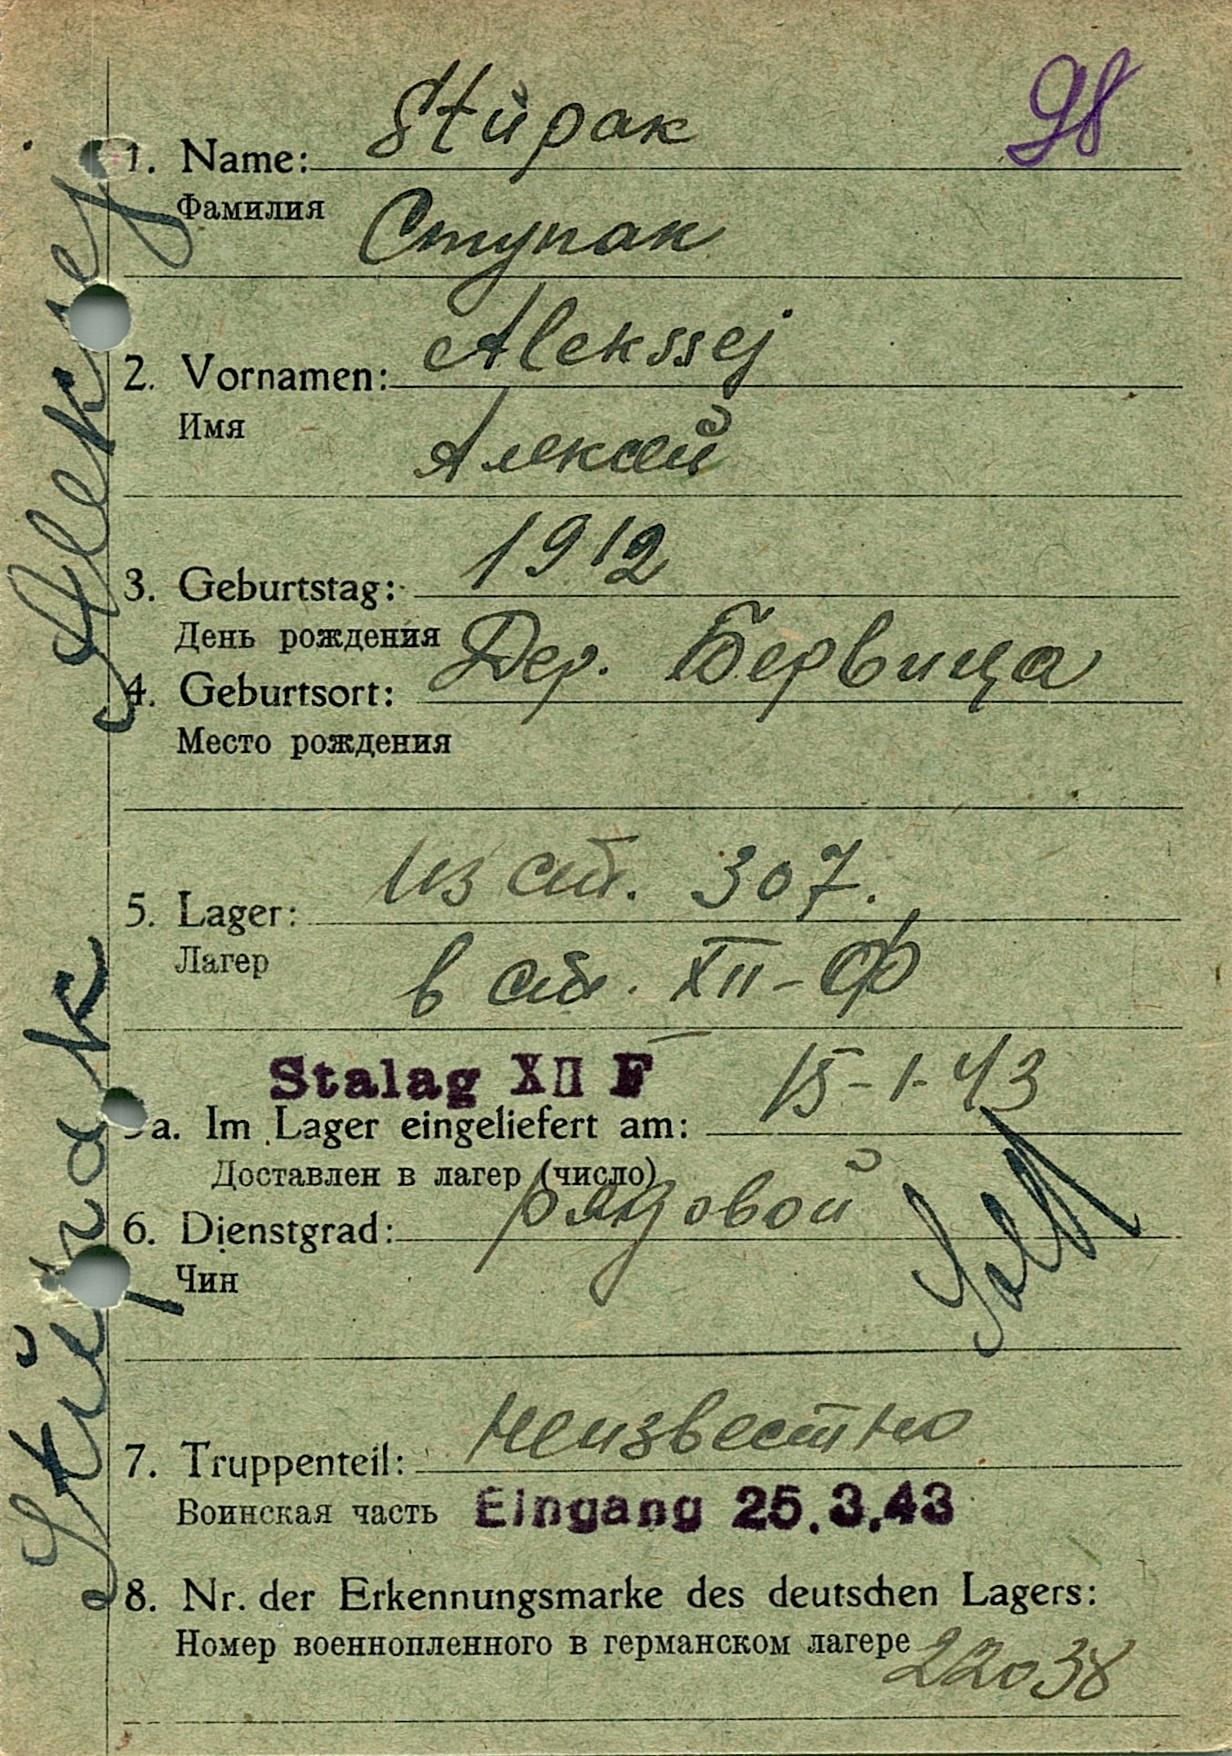 98
Stŭpak
1. Name:
Фамилия
Ступак
Alekssej
2. Vornamen:
Имя
Алексей
1912
3. Geburtstag:
День рождения
Дер. Бервица
4. Geburtsort:
Место рождения
из ст. 307.
5. Lager:
Лагер
в ст. XII-Ф
Stalag XII F
15-1-43
5a. Im Lager eingeliefert am:
Доставлен в лагер (число)
рядовой
6. Dienstgrad:
Чин
неизвестно
7. Truppenteil:
Воинская часть
Eingang 25.3.43
8. Nr. der Erkennungsmarke des deutschen Lagers:
Номер военнопленного в германском лагере
22038
Stŭpak Aleksej